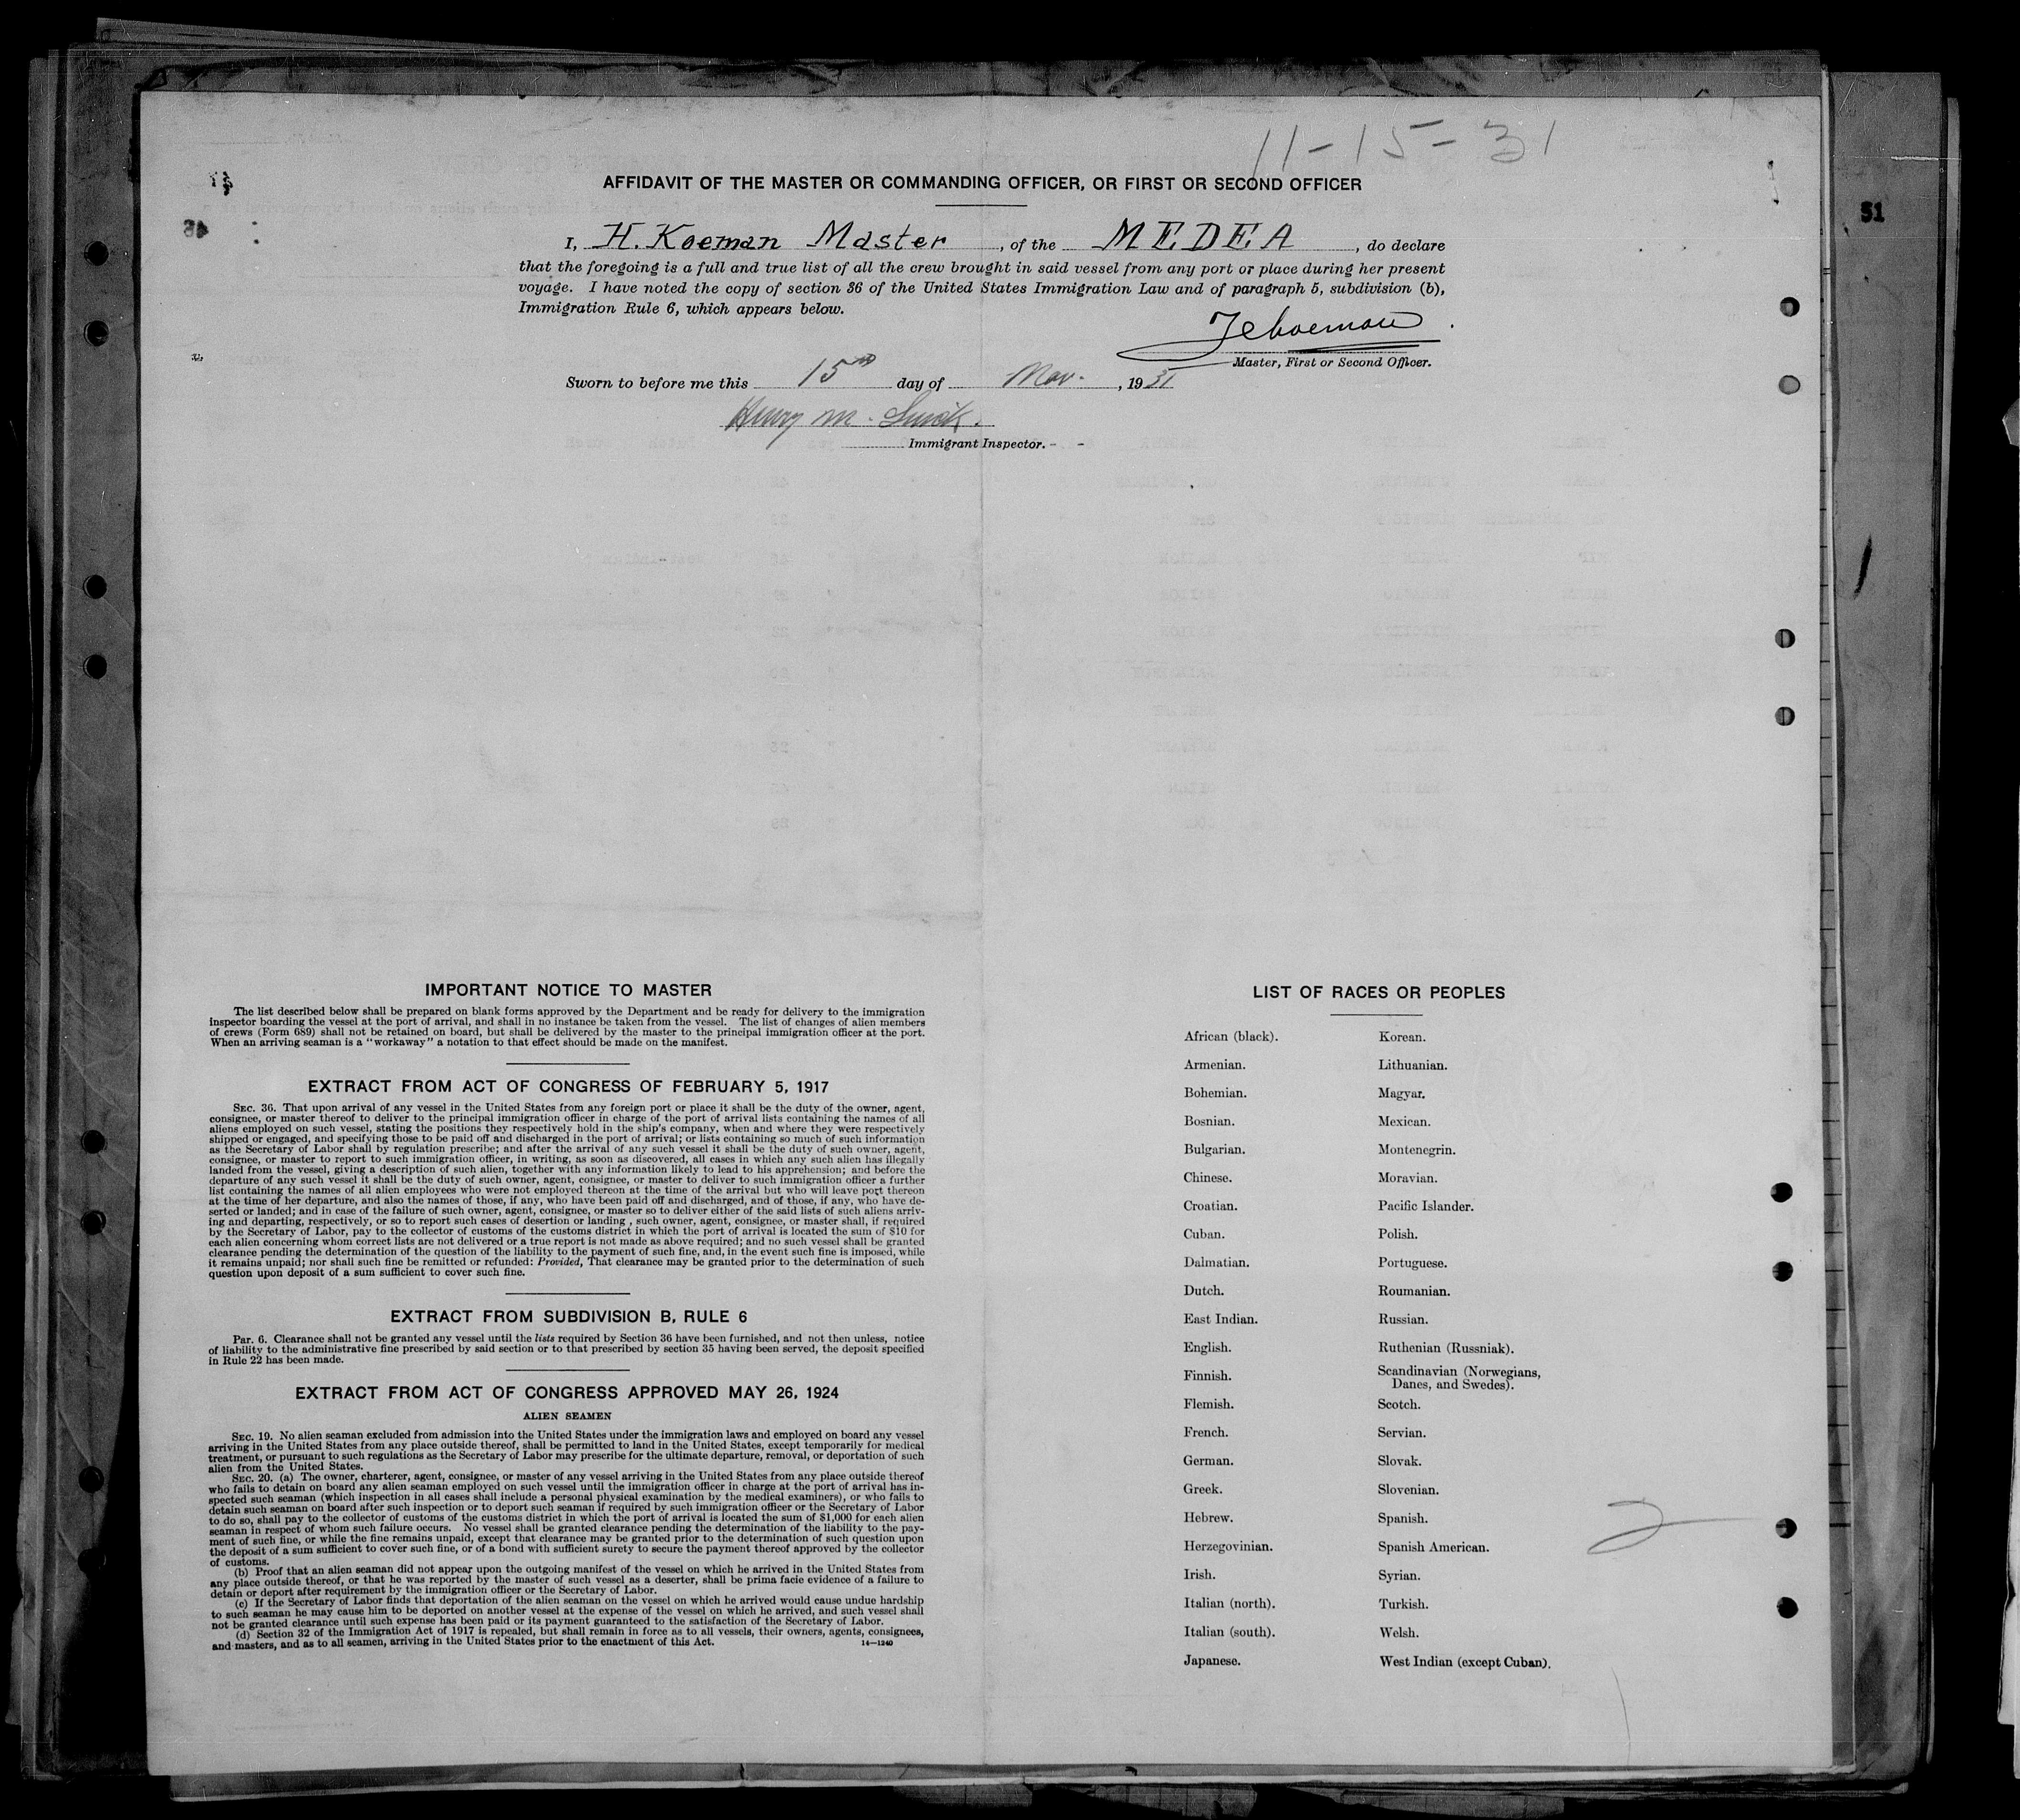 11-15-31
AFFIDAVIT OF THE MASTER OR COMMANDING OFFICER, OR FIRST OR SECOND OFFICER
I, H. Koeman Master, of the MEDEA, do declare
that the foregoing is a full and true list of all the crew brought in said vessel from any port or place during her present
voyage. I have noted the copy of section 36 of the United States Immigration Law and of paragraph 5, subdivision (b),
Immigration Rule 6, which appears below.
Master, First or Second Officer.
Sworn to before me this 15th day of Nov., 1931
Henry M.
Immigrant Inspector.
51
IMPORTANT NOTICE TO MASTER
The list described below shall be prepared on blank forms approved by the Department and be ready for delivery to the immigration
inspector boarding the vessel at the port of arrival, and shall in no instance be taken from the vessel. The list of changes of alien members
of crews (Form 689) shall not be retained on board, but shall be delivered by the master to the principal immigration officer at the port.
When an arriving seaman is a "workaway" a notation to that effect should be made on the manifest.
EXTRACT FROM ACT OF CONGRESS OF FEBRUARY 5, 1917
SEC. 36. That upon arrival of any vessel in the United States from any foreign port or place it shall be the duty of the owner, agent,
consignee, or master thereof to deliver to the principal immigration officer in charge of the port of arrival lists containing the names of all
aliens employed on such vessel, stating the positions they respectively hold in the ship's company, when and where they were respectively
shipped or engaged, and specifying those to be paid off and discharged in the port of arrival; or lists containing so much of such information
as the Secretary of Labor shall by regulation prescribe; and after the arrival of any such vessel it shall be the duty of such owner, agent,
consignee, or master to report to such immigration officer, in writing, as soon as discovered, all cases in which any such alien has illegally
landed from the vessel, giving a description of such alien, together with any information likely to lead to his apprehension; and before the
departure of any such vessel it shall be the duty of such owner, agent, consignee, or master to deliver to such immigration officer a further
list containing the names of all alien employees who were not employed thereon at the time of the arrival but who will leave port thereon
at the time of her departure, and also the names of those, if any, who have been paid off and discharged, and of those, if any, who have de-
serted or landed; and in case of the failure of such owner, agent, consignee, or master so to deliver either of the said lists of such aliens arriv-
ing and departing, respectively, or so to report such cases of desertion or landing , such owner, agent, consignee, or master shall, if required
by the Secretary of Labor, pay to the collector of customs of the customs district in which the port of arrival is located the sum of $10 for
each alien concerning whom correct lists are not delivered or a true report is not made as above required; and no such vessel shall be granted
clearance pending the determination of the question of the liability to the payment of such fine, and, in the event such fine is imposed, while
it remains unpaid; nor shall such fine be remitted or refunded: Provided, That clearance may be granted prior to the determination of such
question upon deposit of a sum sufficient to cover such fine.
EXTRACT FROM SUBDIVISION B, RULE 6
Par. 6. Clearance shall not be granted any vessel until the lists required by Section 36 have been furnished, and not then unless, notice
of liability to the administrative fine prescribed by said section or to that prescribed by section 35 having been served, the deposit specified
in Rule 22 has been made.
EXTRACT FROM ACT OF CONGRESS APPROVED MAY 26, 1924
ALIEN SEAMEN
SEC. 19. No alien seaman excluded from admission into the United States under the immigration laws and employed on board any vessel
arriving in the United States from any place outside thereof, shall be permitted to land in the United States, except temporarily for medical
treatment, or pursuant to such regulations as the Secretary of Labor may prescribe for the ultimate departure, removal, or deportation of such
alien from the United States.
SEC. 20. (a) The owner, charterer, agent, consignee, or master of any vessel arriving in the United States from any place outside thereof
who fails to detain on board any alien seaman employed on such vessel until the immigration officer in charge at the port of arrival has in-
spected such seaman (which inspection in all cases shall include a personal physical examination by the medical examiners), or who fails to
detain such seaman on board after such inspection or to deport such seaman if required by such immigration officer or the Secretary of Labor
to do so, shall pay to the collector of customs of the customs district in which the port of arrival is located the sum of $1,000 for each alien
seaman in respect of whom such failure occurs. No vessel shall be granted clearance pending the determination of the liability to the pay-
ment of such fine, or while the fine remains unpaid, except that clearance may be granted prior to the determination of such question upon
the deposit of a sum sufficient to cover such fine, or of a bond with sufficient surety to secure the payment thereof approved by the collector
of customs.
(b) Proof that an alien seaman did not appear upon the outgoing manifest of the vessel on which he arrived in the United States from
any place outside thereof, or that he was reported by the master of such vessel as a deserter, shall be prima facie evidence of a failure to
detain or deport after requirement by the immigration officer or the Secretary of Labor.
(c) If the Secretary of Labor finds that deportation of the alien seaman on the vessel on which he arrived would cause undue hardship
to such seaman he may cause him to be deported on another vessel at the expense of the vessel on which he arrived, and such vessel shall
not be granted clearance until such expense has been paid or its payment guaranteed to the satisfaction of the Secretary of Labor.
(d) Section 32 of the Immigration Act of 1917 is repealed, but shall remain in force as to all vessels, their owners, agents, consignees,
and masters, and as to all seamen, arriving in the United States prior to the enactment of this Act.
14—1240
LIST OF RACES OR PEOPLES
African (black).
Armenian.
Bohemian.
Bosnian.
Bulgarian.
Chinese.
Croatian.
Cuban.
Dalmatian.
Dutch.
East Indian.
English.
Finnish.
Flemish.
French.
German.
Greek.
Hebrew.
Herzegovinian.
Irish.
Italian (north).
Italian (south).
Japanese.
Korean.
Lithuanian.
Magyar.
Mexican.
Montenegrin.
Moravian.
Pacific Islander.
Polish.
Portuguese.
Roumanian.
Russian.
Ruthenian (Russniak).
Scandinavian (Norwegians,
Danes, and Swedes).
Scotch.
Servian.
Slovak.
Slovenian.
Spanish.
Spanish American.
Syrian.
Turkish.
Welsh.
West Indian (except Cuban).
2